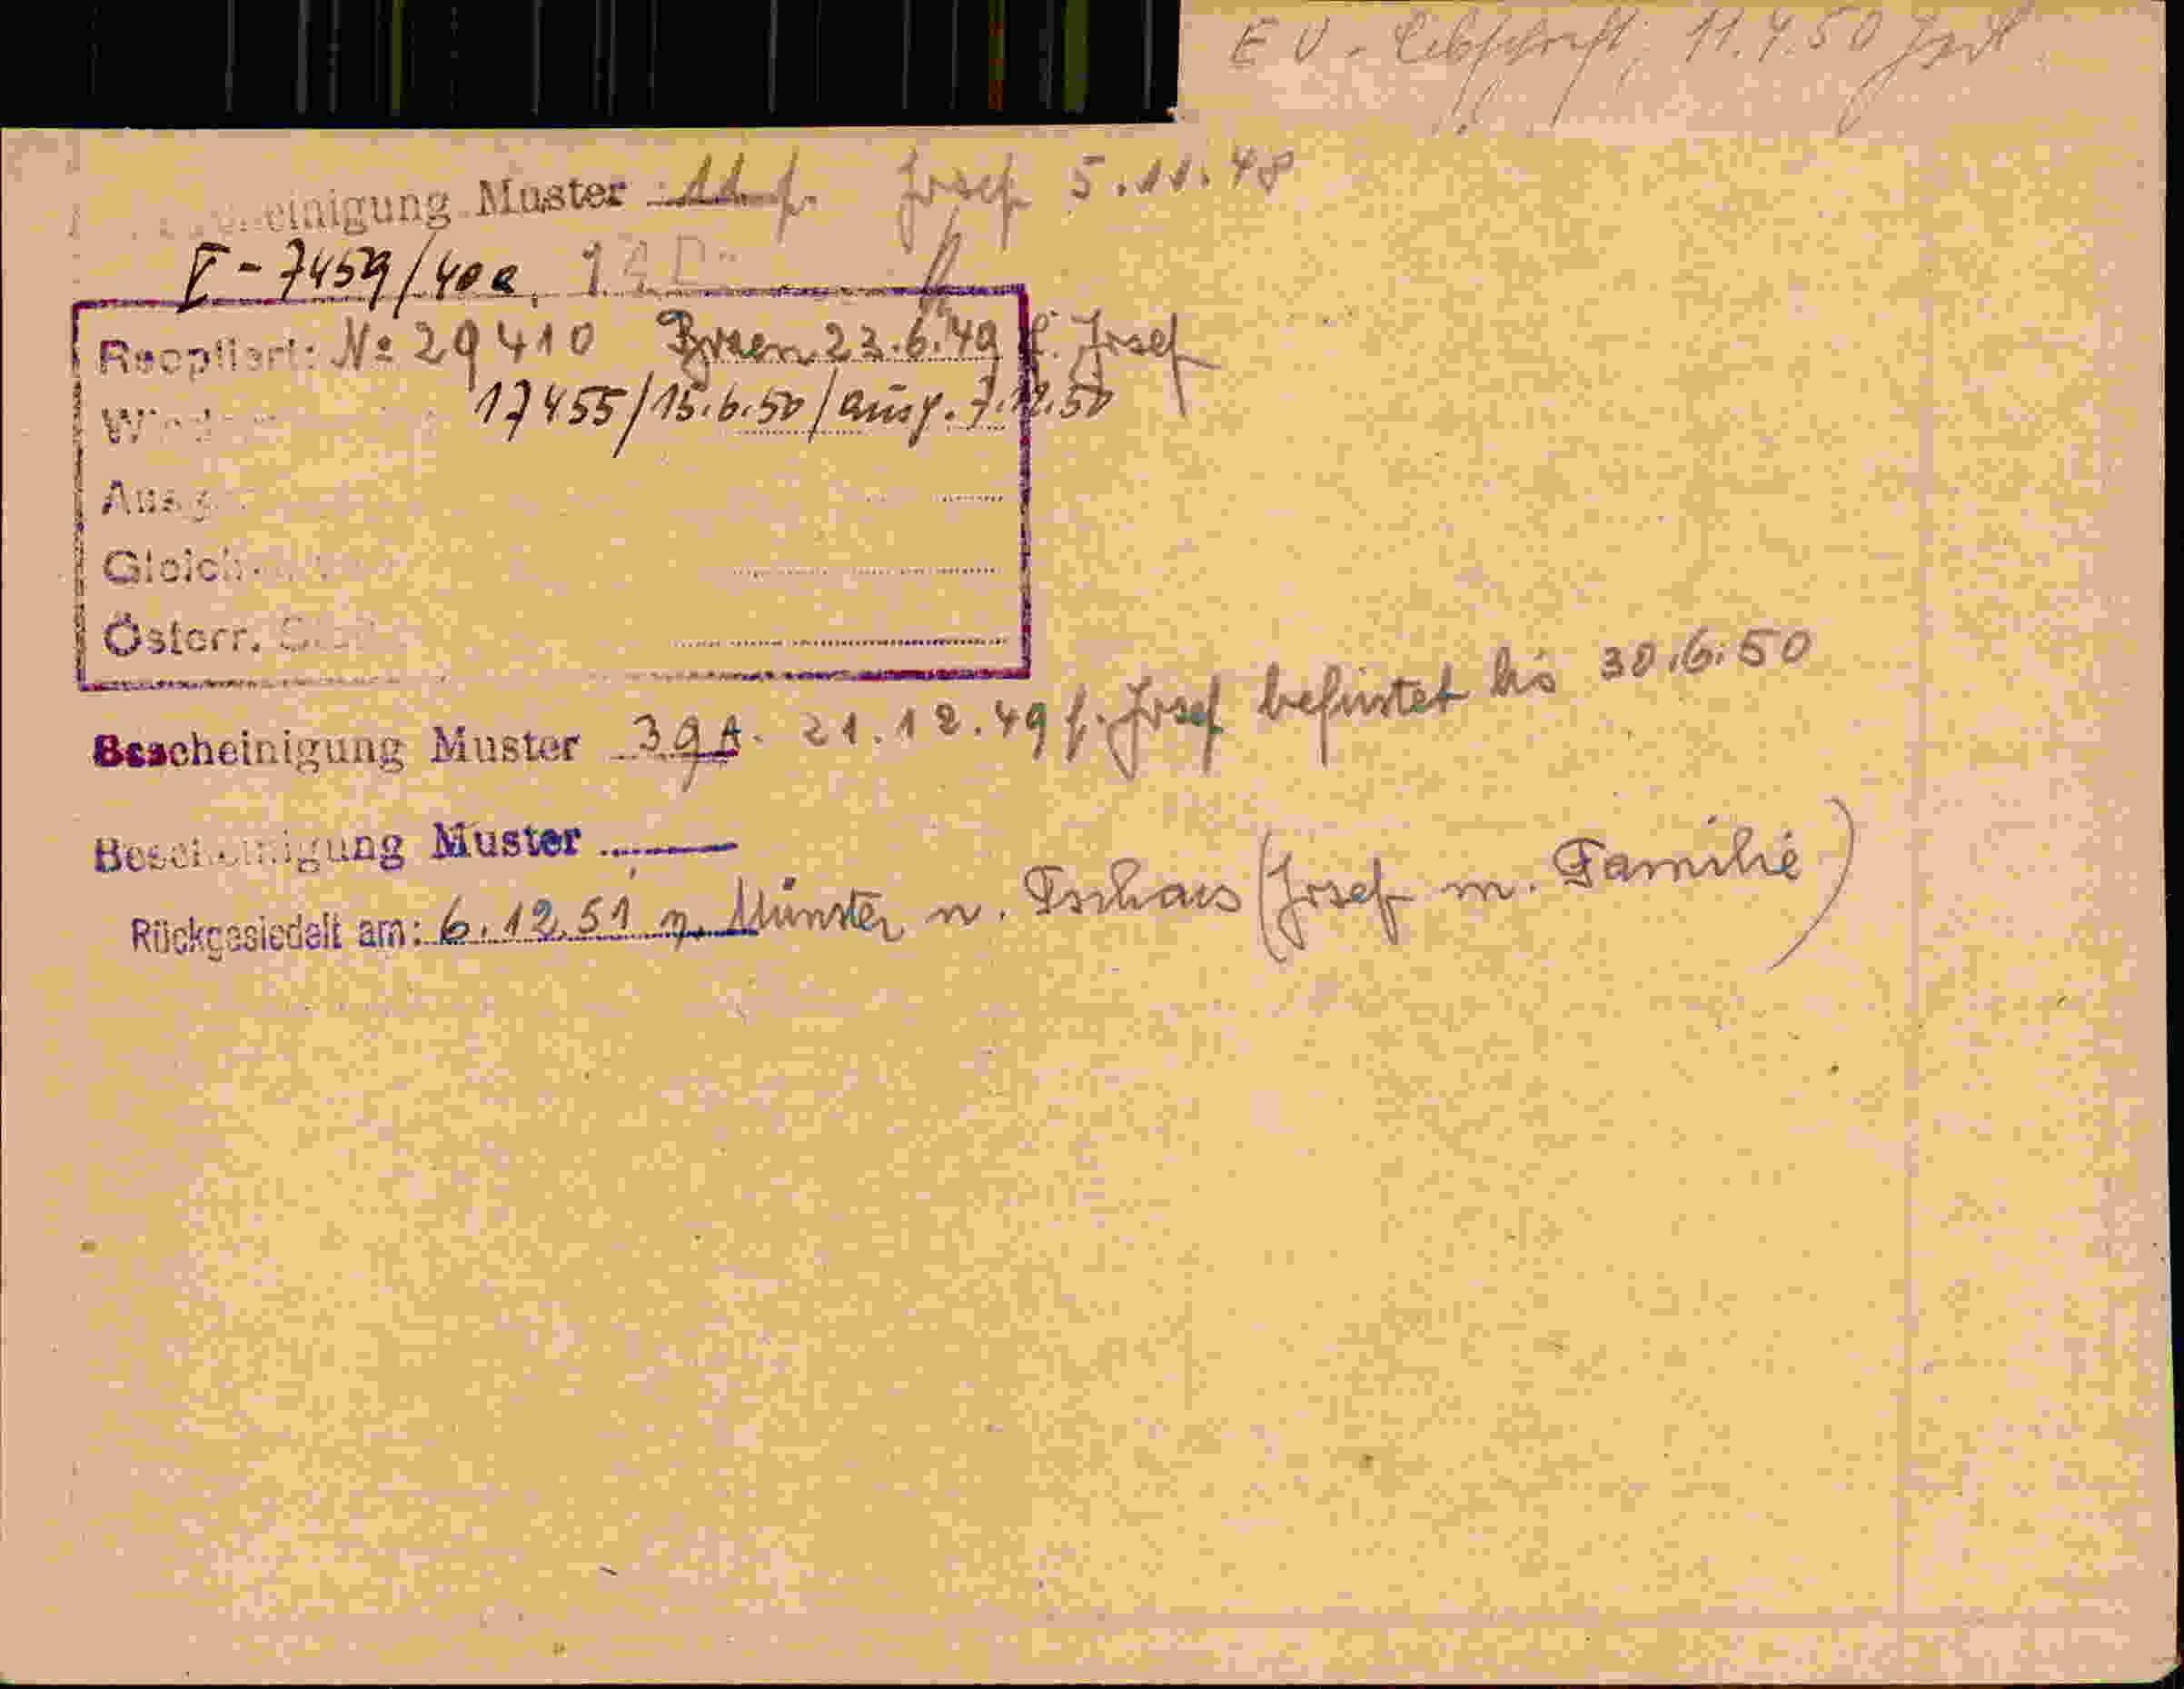 E V - Abschrift, 11.4.50
einigung Muster 11 f. Josef 5.11.48
I - 7459/40 a,
Reoptiert: № 29410 Bozen 23.6.49 f. Josef
17455/15.6.50/ausg. 7.12.50
Ausg
Gleich
Österr.
Bescheinigung Muster 39A. 21.12.49 f. Josef befristet bis 30.6.50
Bescheinigung Muster
Rückgesiedelt am: 6.12.51 n. Münster n. (Josef m. Familie)